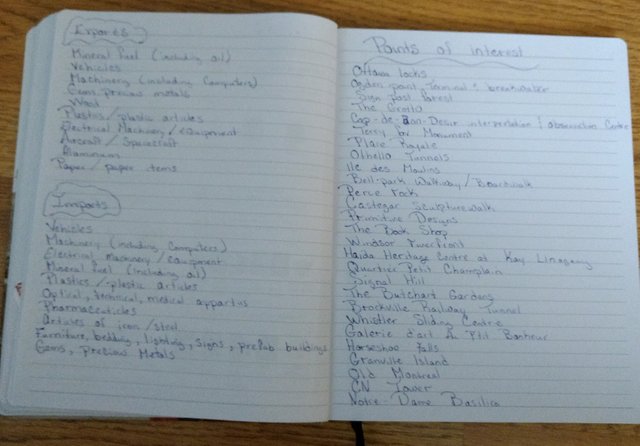 Exports
Mineral fuel (including oil)
Vehicles
Machinery (including Computers)
Gems, precious metals
Wood
Plastics / plastic articles
Electrical Machinery / equipment
Aircraft / Spacecraft
Aluminum
Paper / paper items
Imports
Vehicles
Machinery (including Computers)
Electrical machinery / equipment
Mineral fuel (including oil)
Plastics / plastic articles
Optical, technical, medical apparatus
Pharmaceuticals
Articles of iron / steel
Furniture, bedding, lighting, signs, prefab buildings
Gems, Precious Metals
Points of interest
Ottawa locks
Ogden point terminal & breakwater
Sign post forest
The Grotto
Cap-de-Bon-Desir interpretation & observation Centre
Terry Fox Monument
Place Royale
Othello Tunnels
Ile des Moulins
Bell park Walkway / Boardwalk
Perce rock
Castlegar Sculpturewalk
Primitive Designs
The Book Shop
Windsor Riverfront
Haida Heritage Centre at Kay Llnagaay
Quartier Petit Champlain
Signal Hill
The Butchart Gardens
Brockville Railway Tunnel
Whistler Sliding Centre
Galerie d'art Au P'tit Bonheur
Horseshoe Falls
Granville Island
Old Montreal
CN Tower
Notre-Dame Basilica